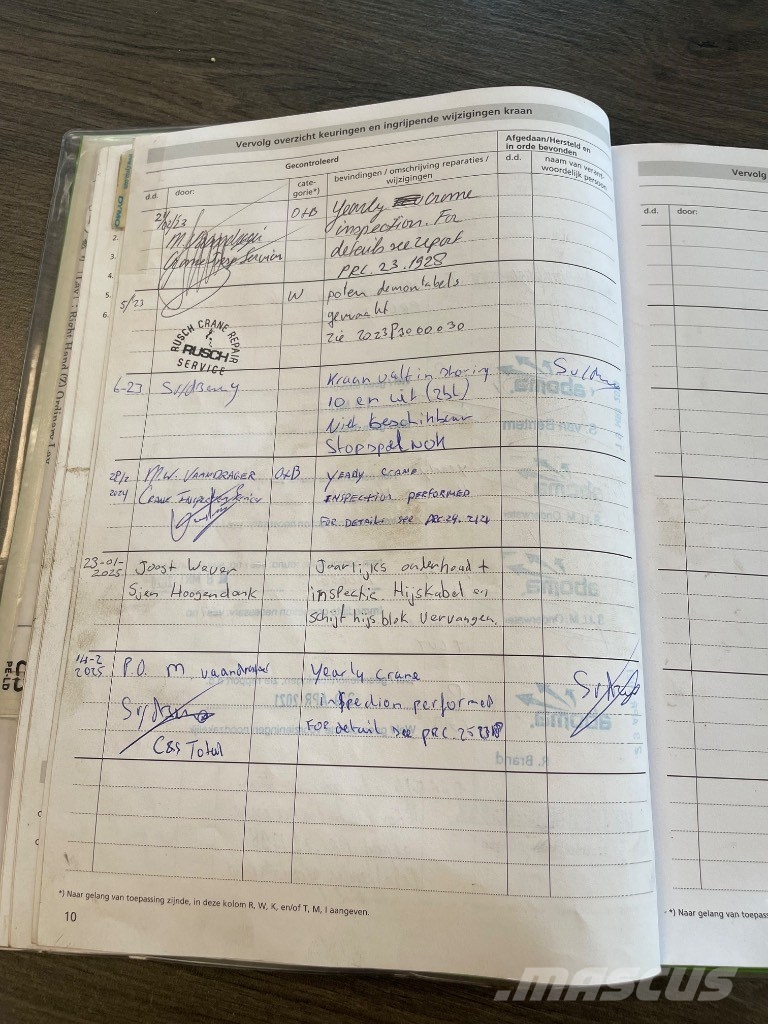 Vervolg overzicht keuringen en ingrijpende wijzigingen kraan
Gecontroleerd
Afgedaan/Hersteld en
in orde bevonden
d.d.
door:
cate-
gorie*)
bevindingen / omschrijving reparaties /
wijzigingen
d.d.
naam van verant-
woordelijk persoon
O+B
Yearly crane
inspection. For
details see report
PRC. 23.1928
5/23
W
poten demontabels
gemaakt
zie 2023P3000030
RUSCH CRANE REPAIR
RUSCH
SERVICE
6-23
Kraan valt in storing
10 en uit (2bl)
Niet beschikbaar
Stopspel NOK
2024
M.W. VAANDRAGER
O+B
YEARLY CRANE
INSPECTION PERFORMED
FOR DETAILS SEE PRC.24.2124
23-01-
2025
Joost Waver
Sjen Hoogendonk
Jaarlijks onderhoud +
inspectie Hijskabel en
schijf hijsblok vervangen.
14-2
2025
P.O. M Vaandrager
C&S Total
Yearly crane
inspection performed
FOR detail see PRC.
*) Naar gelang van toepassing zijnde, in deze kolom R, W, K, en/of T, M, I aangeven.
10
Vervolg
d.d.
door:
*) Naar gelang van toepass
PE-LD
mascus